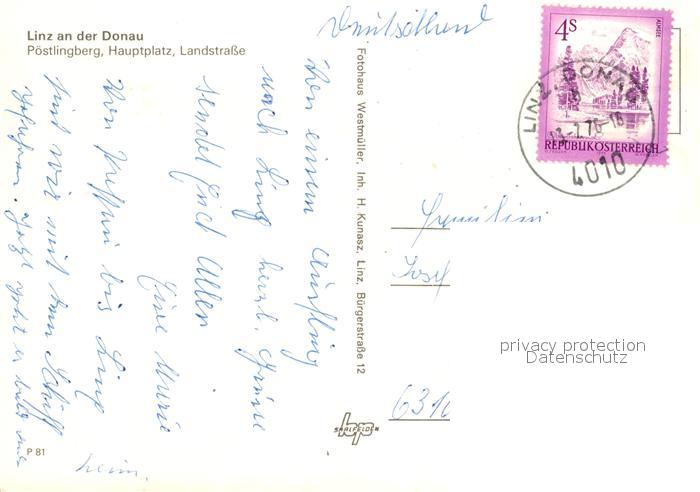 Linz an der Donau
Pöstlingberg, Hauptplatz, Landstraße
Deutschland
Von einem Ausflug
nach Linz herzl. Grüße
sendet Euch Allen
Eure Marie
Von Passau bis Linz
sind wir mit dem Schiff
gefahren. Jetzt geht es bald
heim.
P 81
Fotohaus Westmüller, Inh. H. Kunasz, Linz, Bürgerstraße 12
SAALFELDEN
4S
ALMSEE
REPUBLIK ÖSTERREICH
LINZ, DONAU
4010
Familien
Josef
6310
privacy protection
Datenschutz